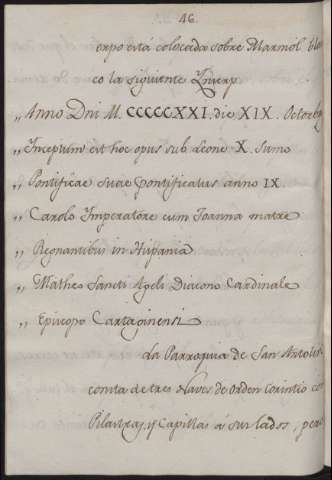 46.
expo està colocada sobre Marmol blan
co la siguiente Ynscrip.
„ Anno Dni M. CCCCCXXI. die XIX. Octorbr
„ Inceptum est hoc opus sub Leone X. Sumo
„ Pontificae suae Pontificatus anno IX.
„ Carolo Imperatore cum Ioanna matre
„ Regnantibus in Hispania
„ Matheo Sancti Ageli Diacono Cardinale
„ Episcopo Cartaginensi
La Parroquia de San Antolin
consta de tres Naves de Orden Corintio con
Pilastras, y Capillas à sus lados, pero